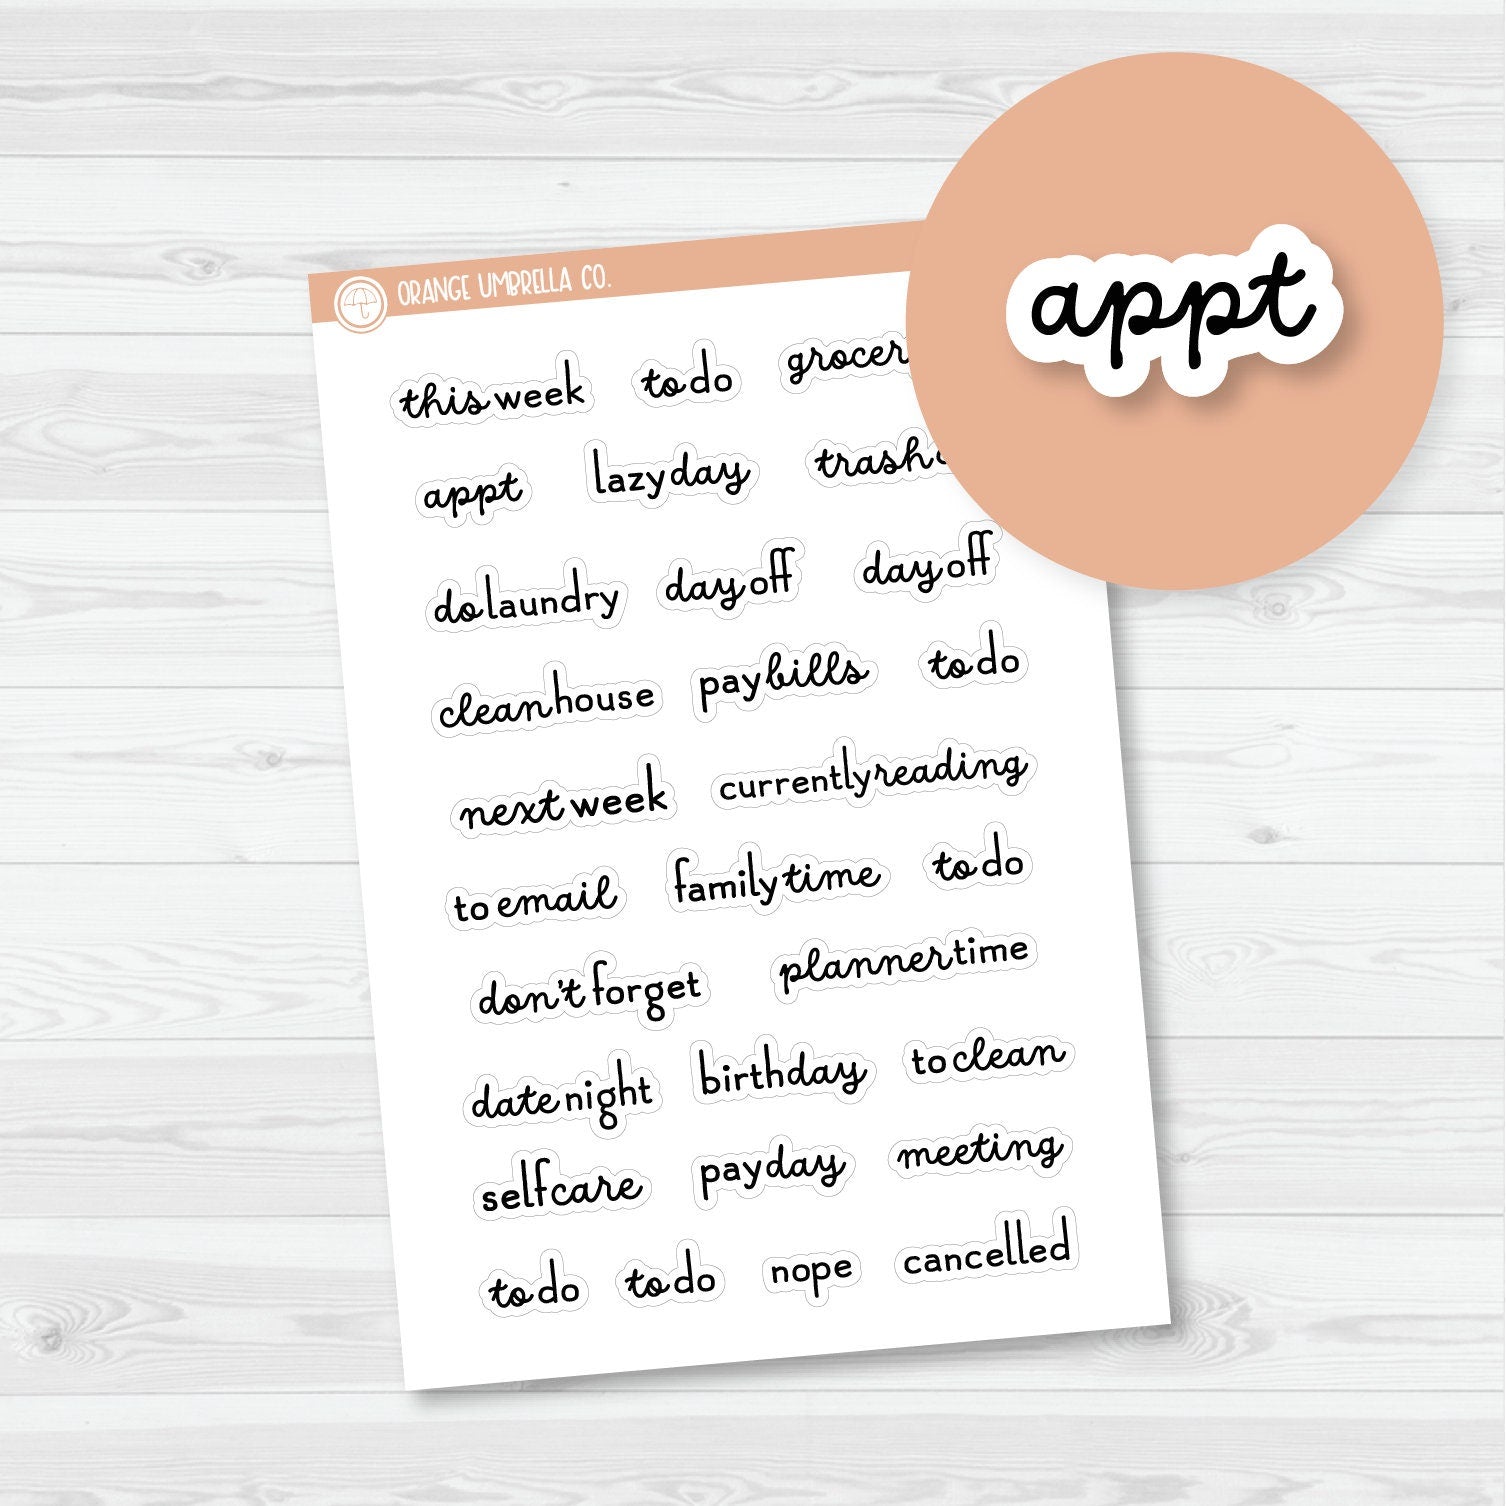 ORANGE UMBRELLA CO.
appt
this week to do grocer
appt lazy day trash
do laundry day off day off
clean house pay bills to do
next week currently reading
to email family time to do
don't forget planner time
date night birthday to clean
self care pay day meeting
to do to do nope cancelled